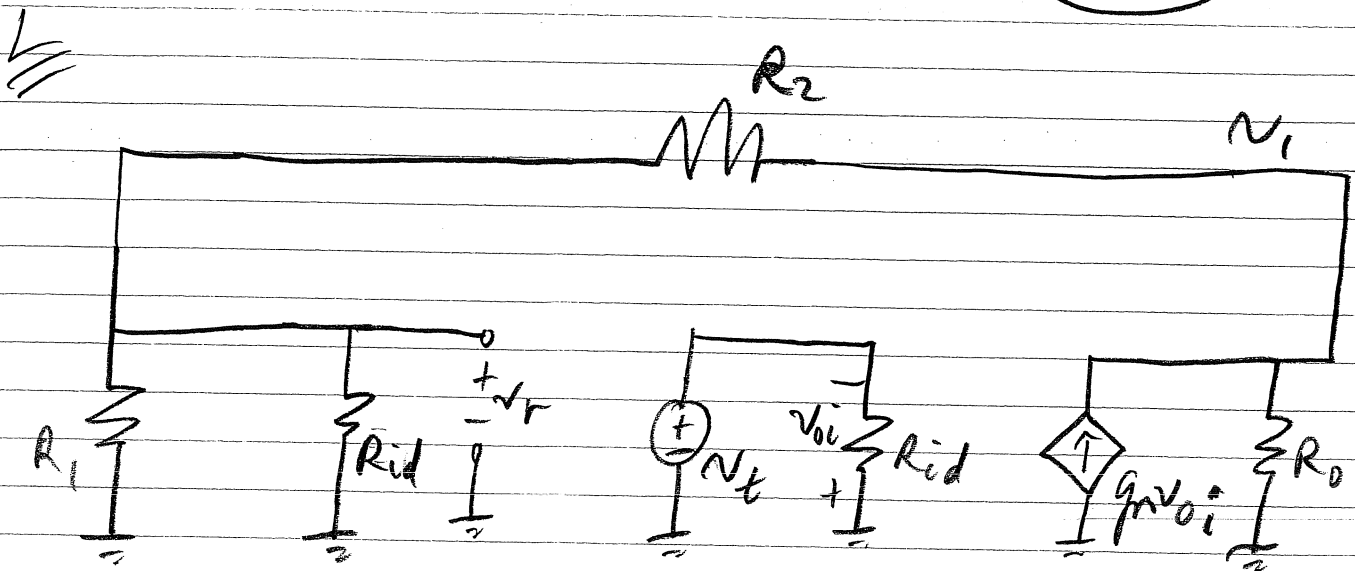 R₂
v₁
+
v_r
-
R₁
R_id
+
-
v_t
-
v_oi
+
R_id
↑
g_m v_oi
R_o